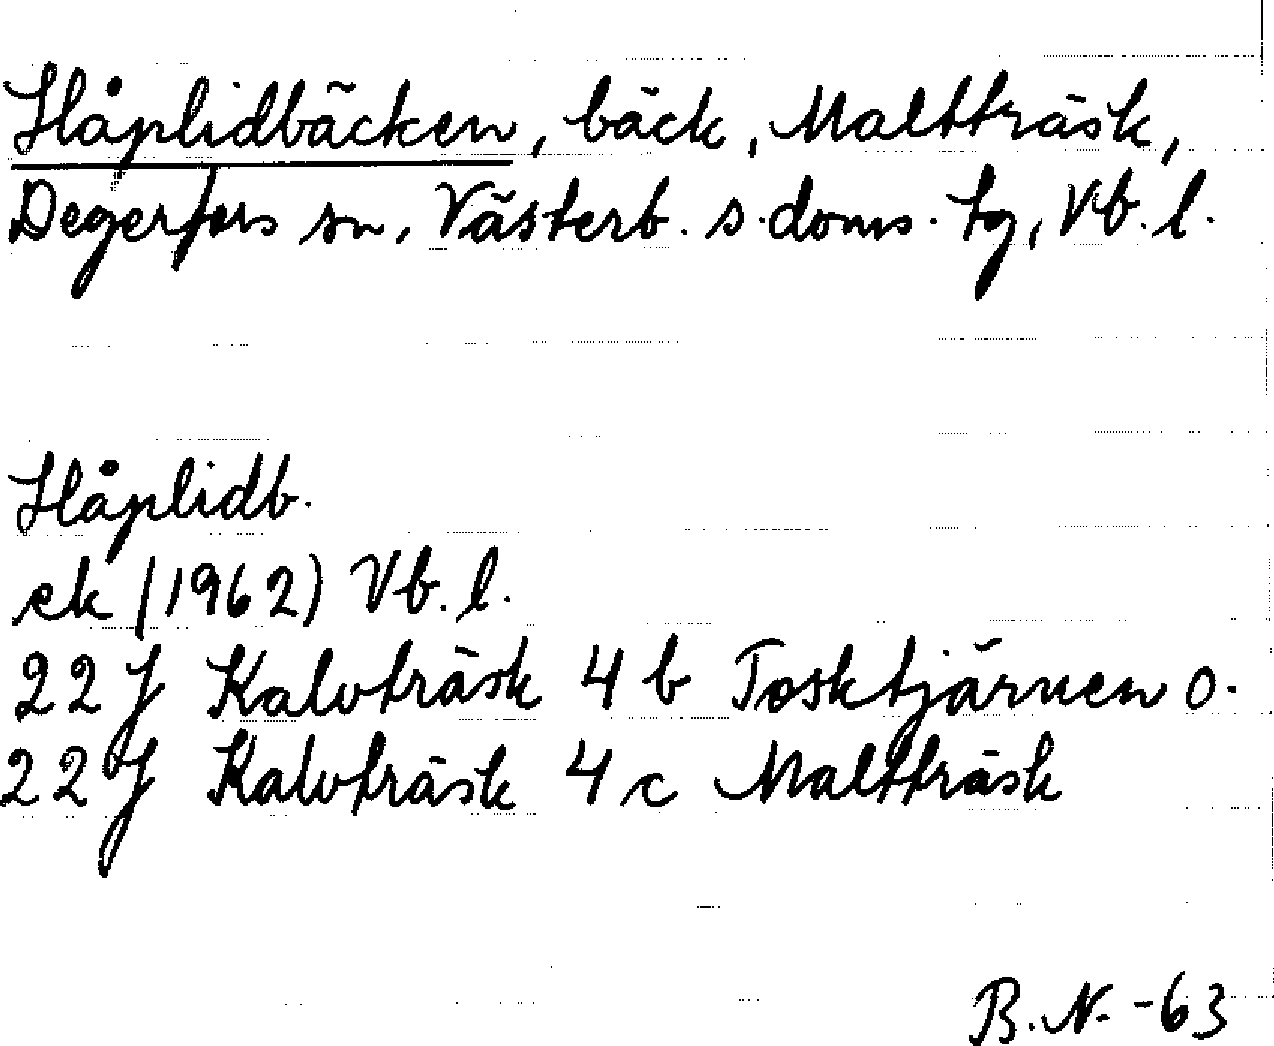 Håplidbäcken, bäck, Maltträsk,
Degerfors sn, Västerb. s. doms. tg, Vb. l.
Håplidb.
ek (1962) Vb. l.
22 J Kalvträsk 4 b Tosktjärnen o.
22 J Kalvträsk 4 c Maltträsk
B. N. -63